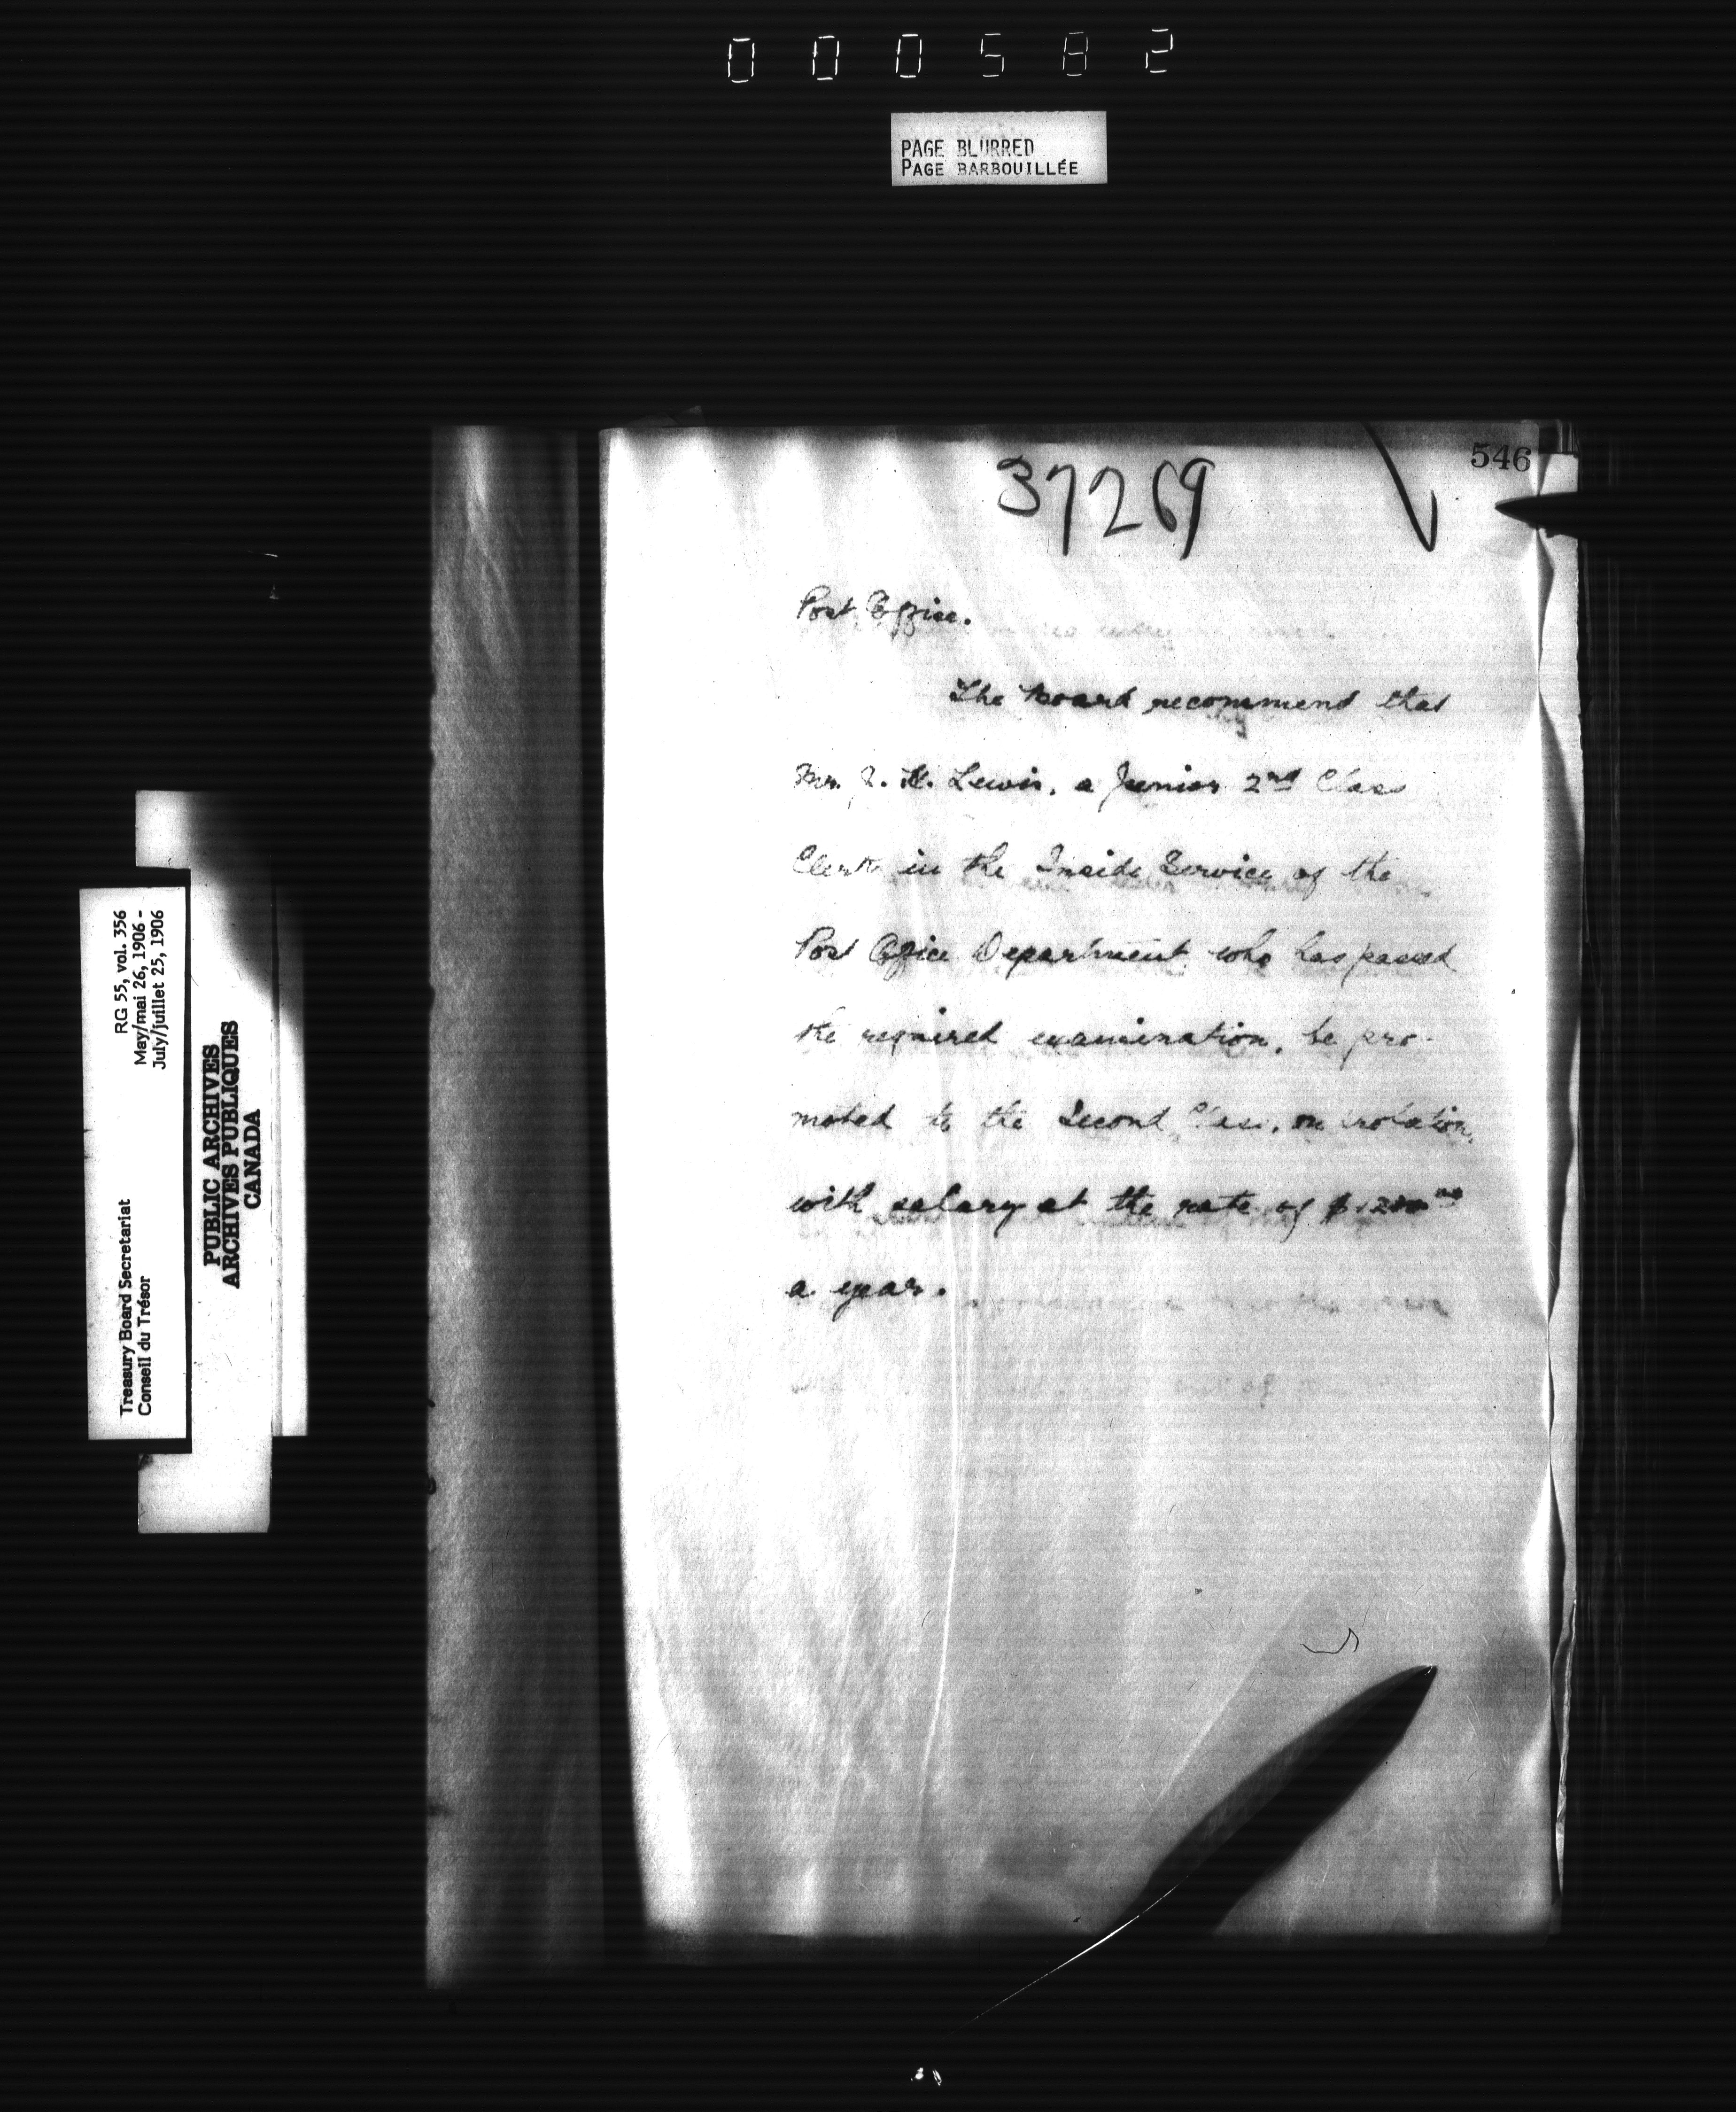 000582
PAGE BLURRED
PAGE BARBOUILLÉE
546
37269
Post Office.
The Board recommend that
Mr. J. H. Lewis, a Junior 2nd Class
Clerk in the Inside Service of the
Post Office Department who has passed
the required examination, be pro-
moted to the Second Class, on probation,
with salary at the rate of $1200.00
a year.
RG 55, vol. 356
May/mai 26, 1906 -
July/juillet 25, 1906
Treasury Board Secretariat
Conseil du Trésor
PUBLIC ARCHIVES
ARCHIVES PUBLIQUES
CANADA